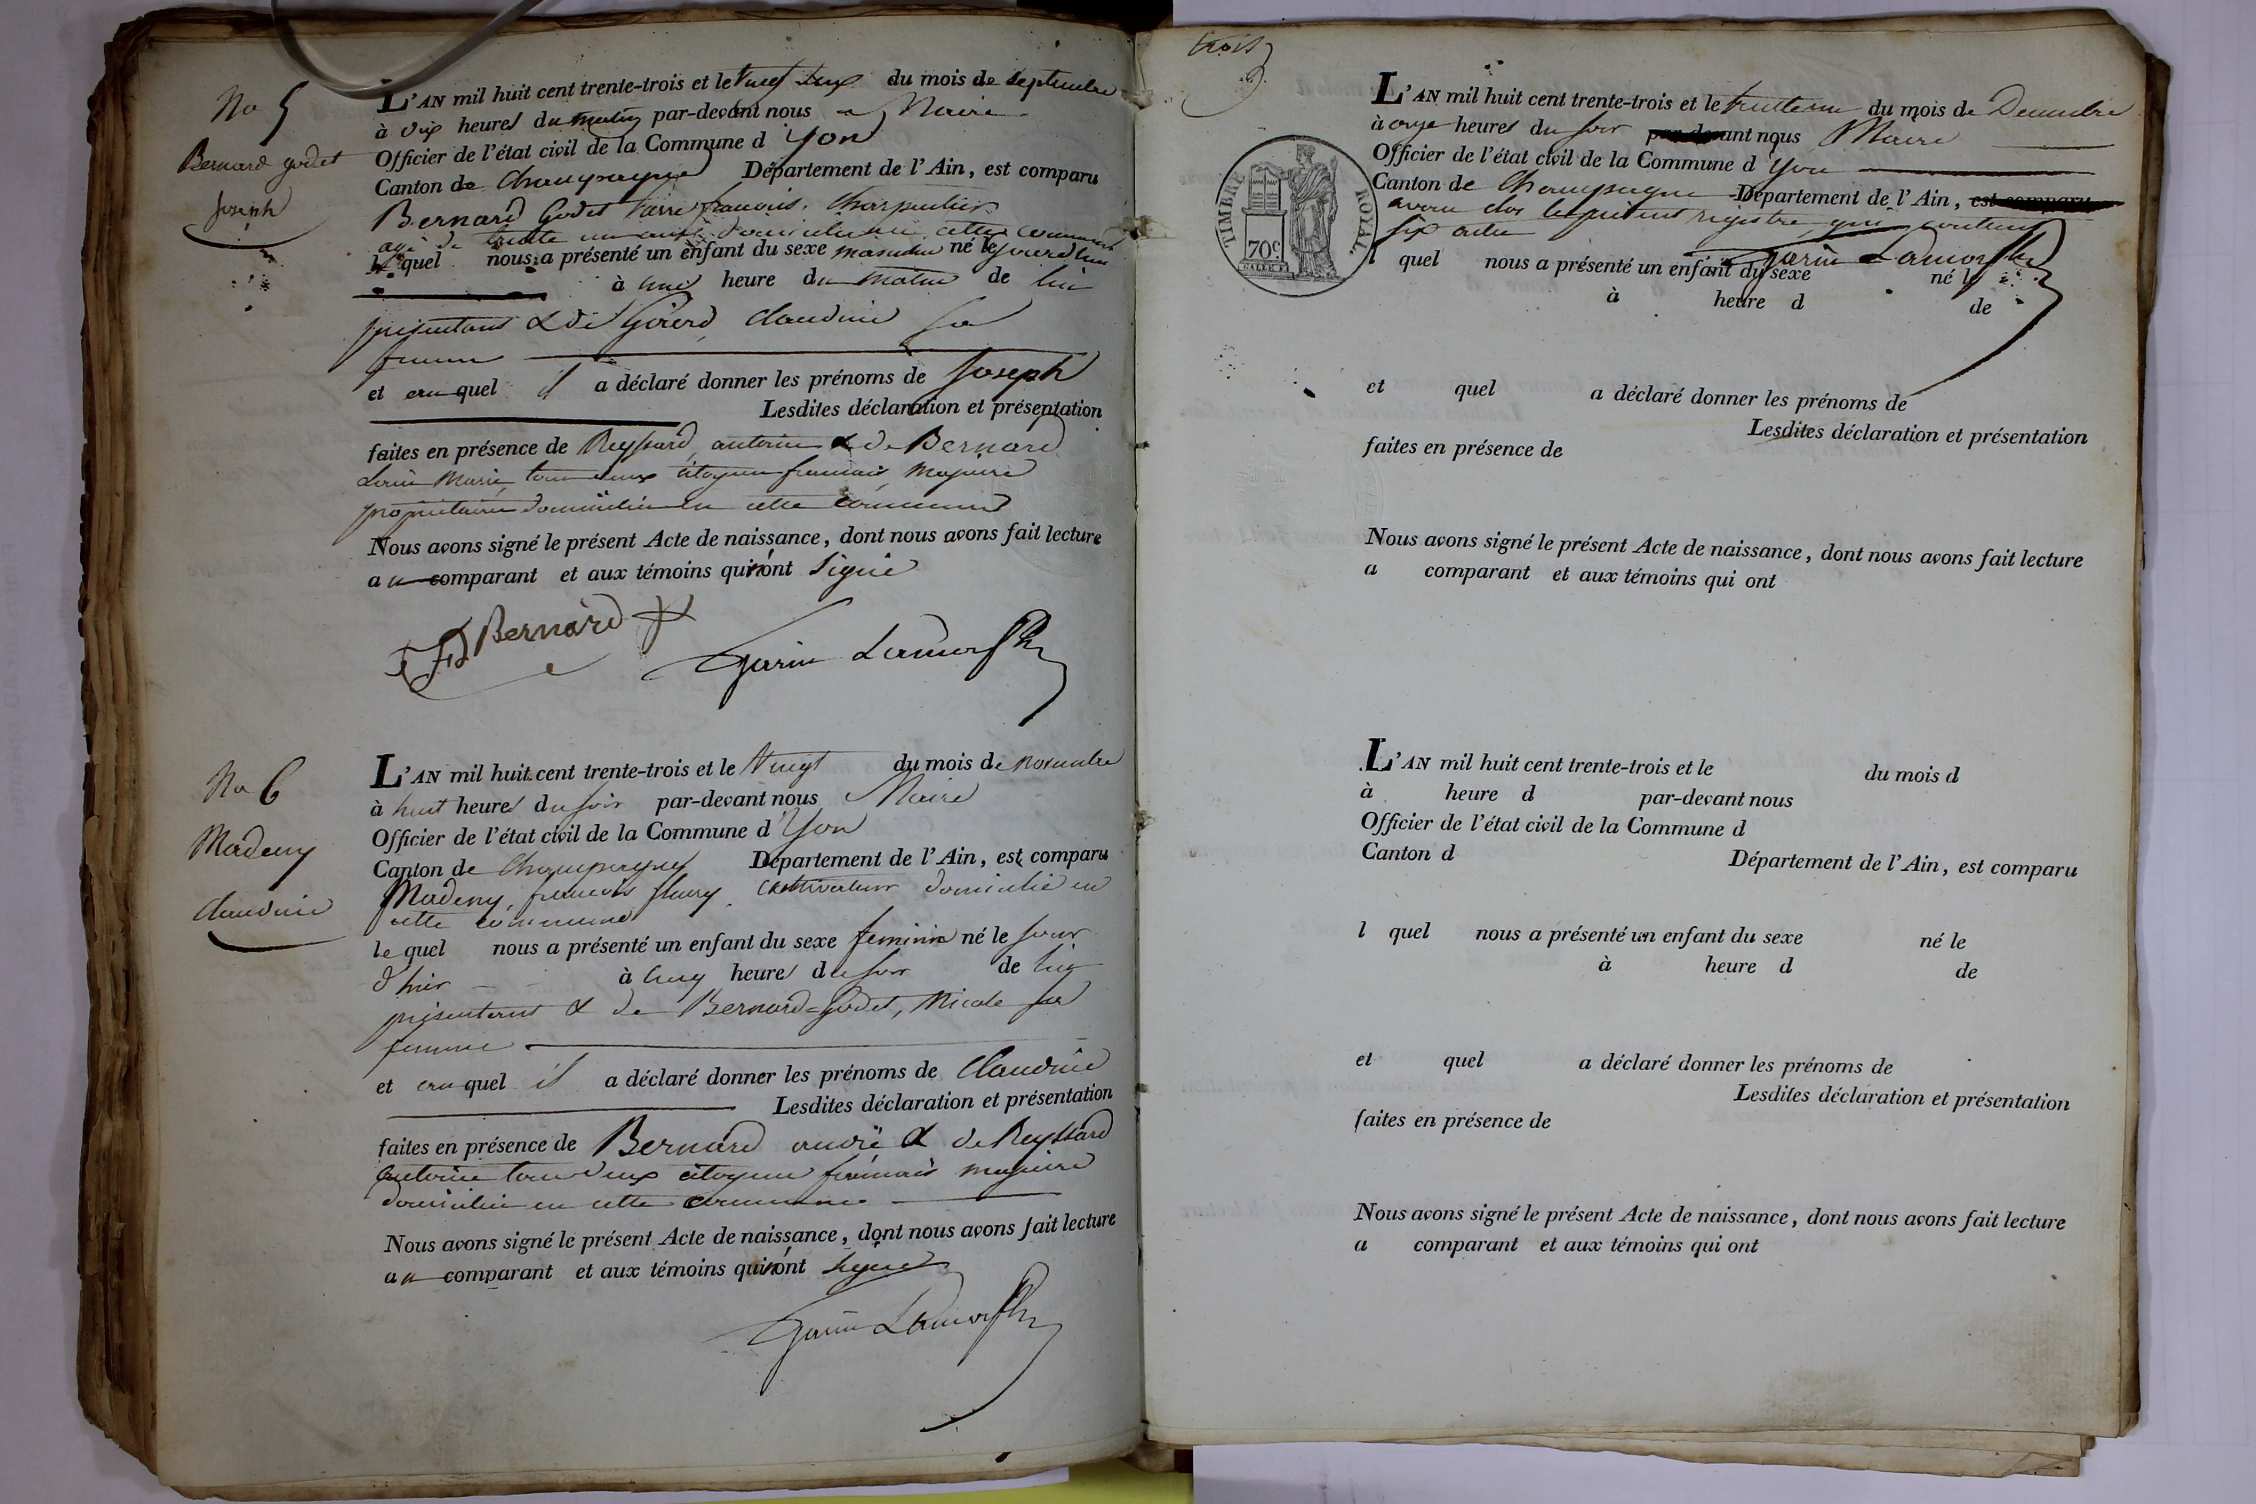 No 5
Bernard Godet
Joseph
L'AN mil huit cent trente-trois et le vingt deux du mois de septembre
à dix heures du matin par-devant nous Maire
Officier de l'état civil de la Commune d'yon
Canton de Champagne Département de l'Ain, est comparu
Bernard Godet françois, charpentier
agé de trente domicilié en cette commune
lequel nous a présenté un enfant du sexe masculin né le jourd'hui
à une heure du matin de lui
présentant & de Claudine sa
femme
et auquel il a déclaré donner les prénoms de Joseph
Lesdites déclaration et présentation
faites en présence de Reyssard antoine & de Bernard
Louis Marie, tous deux citoyens francais, majeurs
propriétaires domiciliés en cette commune
Nous avons signé le présent Acte de naissance, dont nous avons fait lecture
au comparant et aux témoins qui ont signé
Bernard
Garin Lamorflan
No 6
Madeny
Claudine
L'AN mil huit cent trente-trois et le vingt du mois de novembre
à huit heures du soir par-devant nous Maire
Officier de l'état civil de la Commune d'yon
Canton de Champagne Département de l'Ain, est comparu
Madeny, françois fleury, cultivateur domicilié en
cette commune
lequel nous a présenté un enfant du sexe feminin né le jour
d'hier à cinq heures du soir de lui
présentant & de Bernard=Godet, Nicole sa
femme
et auquel il a déclaré donner les prénoms de Claudine
Lesdites déclaration et présentation
faites en présence de Bernard andré & de Reyssard
antoine tous deux citoyens francais majeurs
domiciliés en cette commune
Nous avons signé le présent Acte de naissance, dont nous avons fait lecture
au comparant et aux témoins qui n'ont signé
Garin Lamorflan
trois
TIMBRE ROYAL
70c
L'AN mil huit cent trente-trois et le trente un du mois de Decembre
à onze heures du soir nous Maire
Officier de l'état civil de la Commune d'yon
Canton de Champagne Département de l'Ain, est comparu
avons clos le présent registre qui contient
six actes
Garin Lamorflan
l quel nous a présenté un enfant du sexe né le
à heure d de
et quel a déclaré donner les prénoms de
Lesdites déclaration et présentation
faites en présence de
Nous avons signé le présent Acte de naissance, dont nous avons fait lecture
a comparant et aux témoins qui ont
L'AN mil huit cent trente-trois et le du mois d
à heure d par-devant nous
Officier de l'état civil de la Commune d
Canton d Département de l'Ain, est comparu
l quel nous a présenté un enfant du sexe né le
à heure d de
et quel a déclaré donner les prénoms de
Lesdites déclaration et présentation
faites en présence de
Nous avons signé le présent Acte de naissance, dont nous avons fait lecture
a comparant et aux témoins qui ont